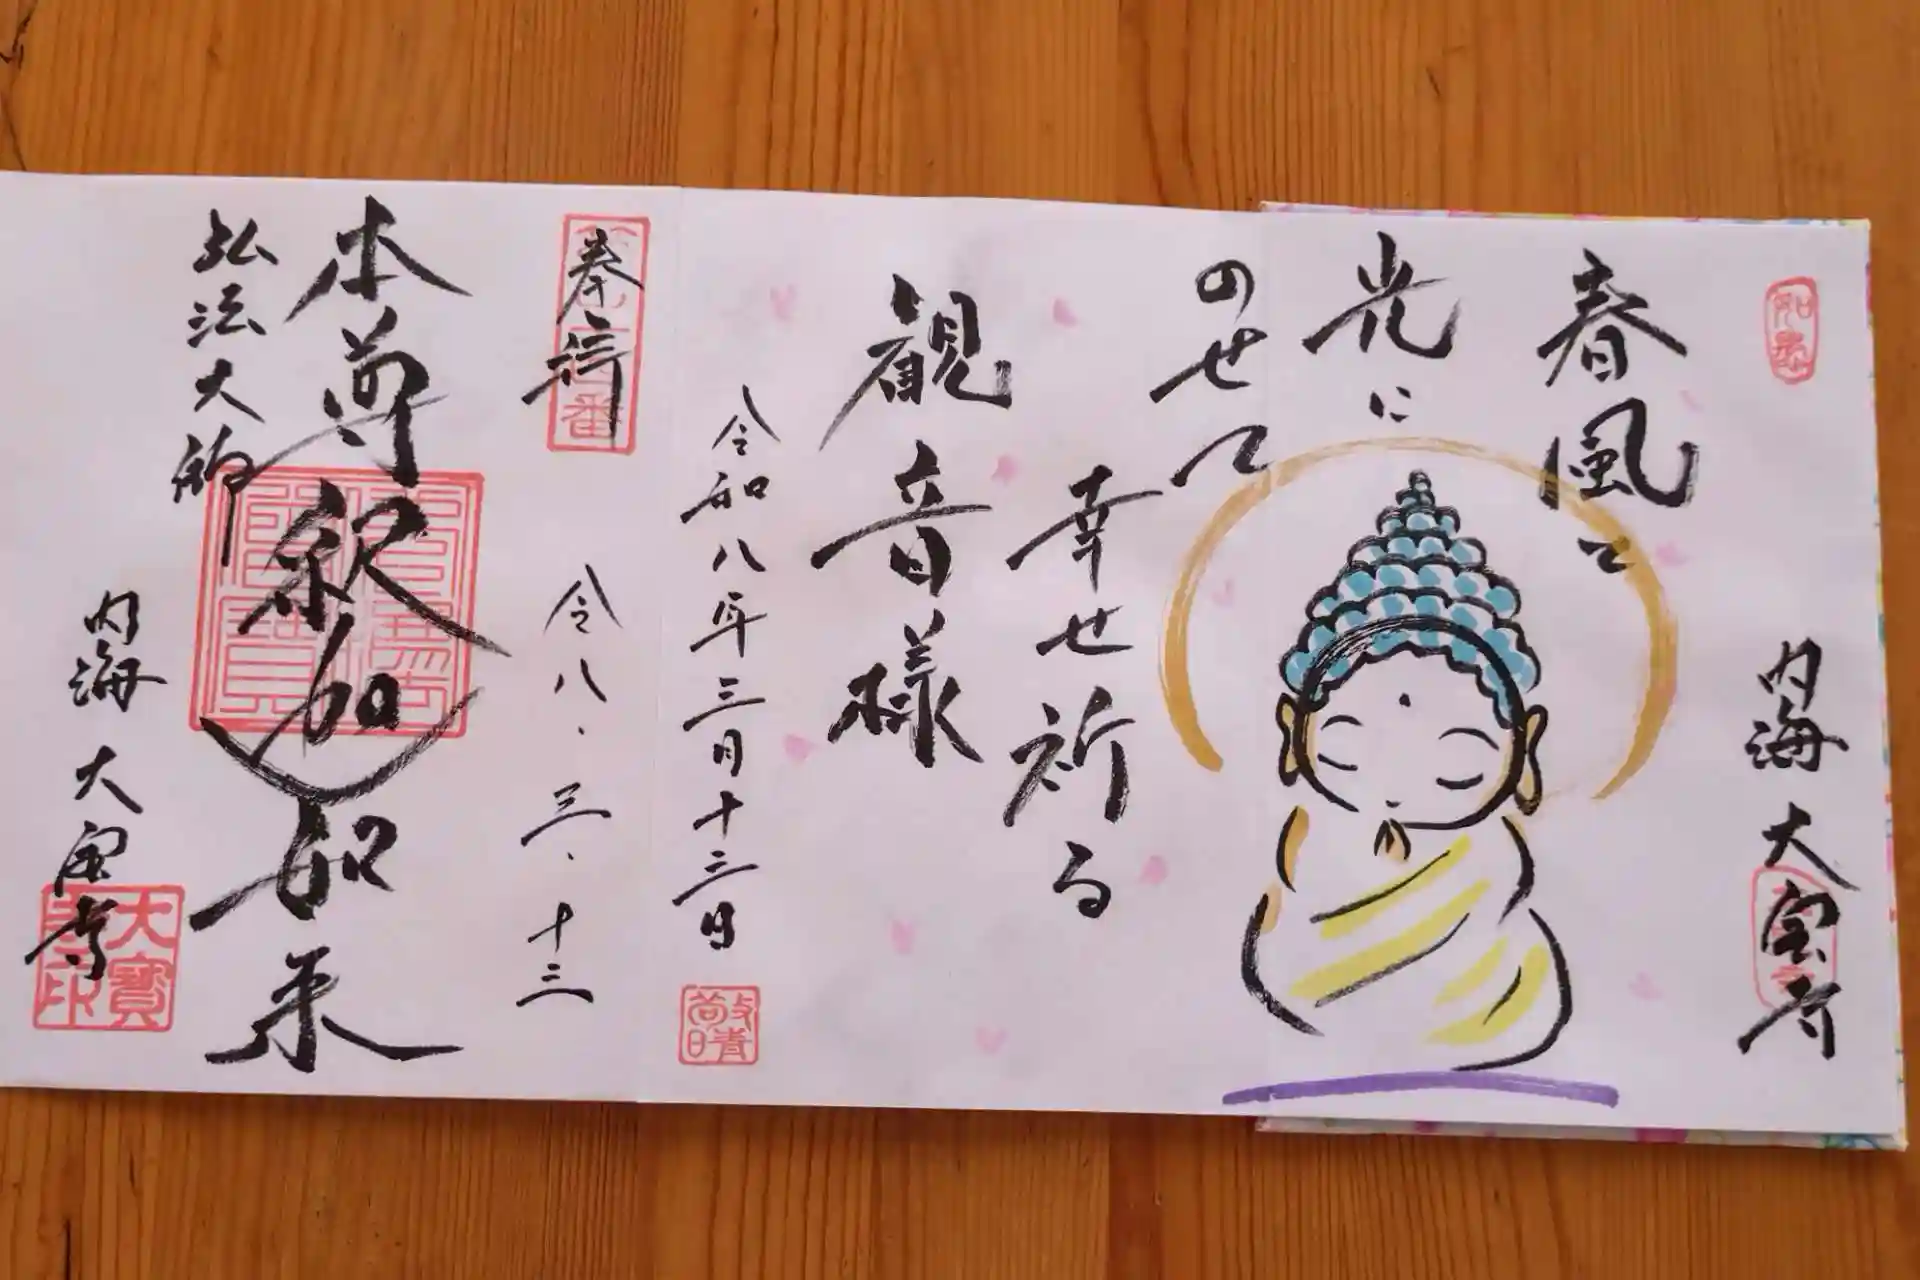 春風と
光に
のせて
幸せ祈る
観音様
令和八年三月十三日
内海 大宝寺
奉拝
令八.三.十三
本尊釈加如来
弘法大師
内海 大宝寺